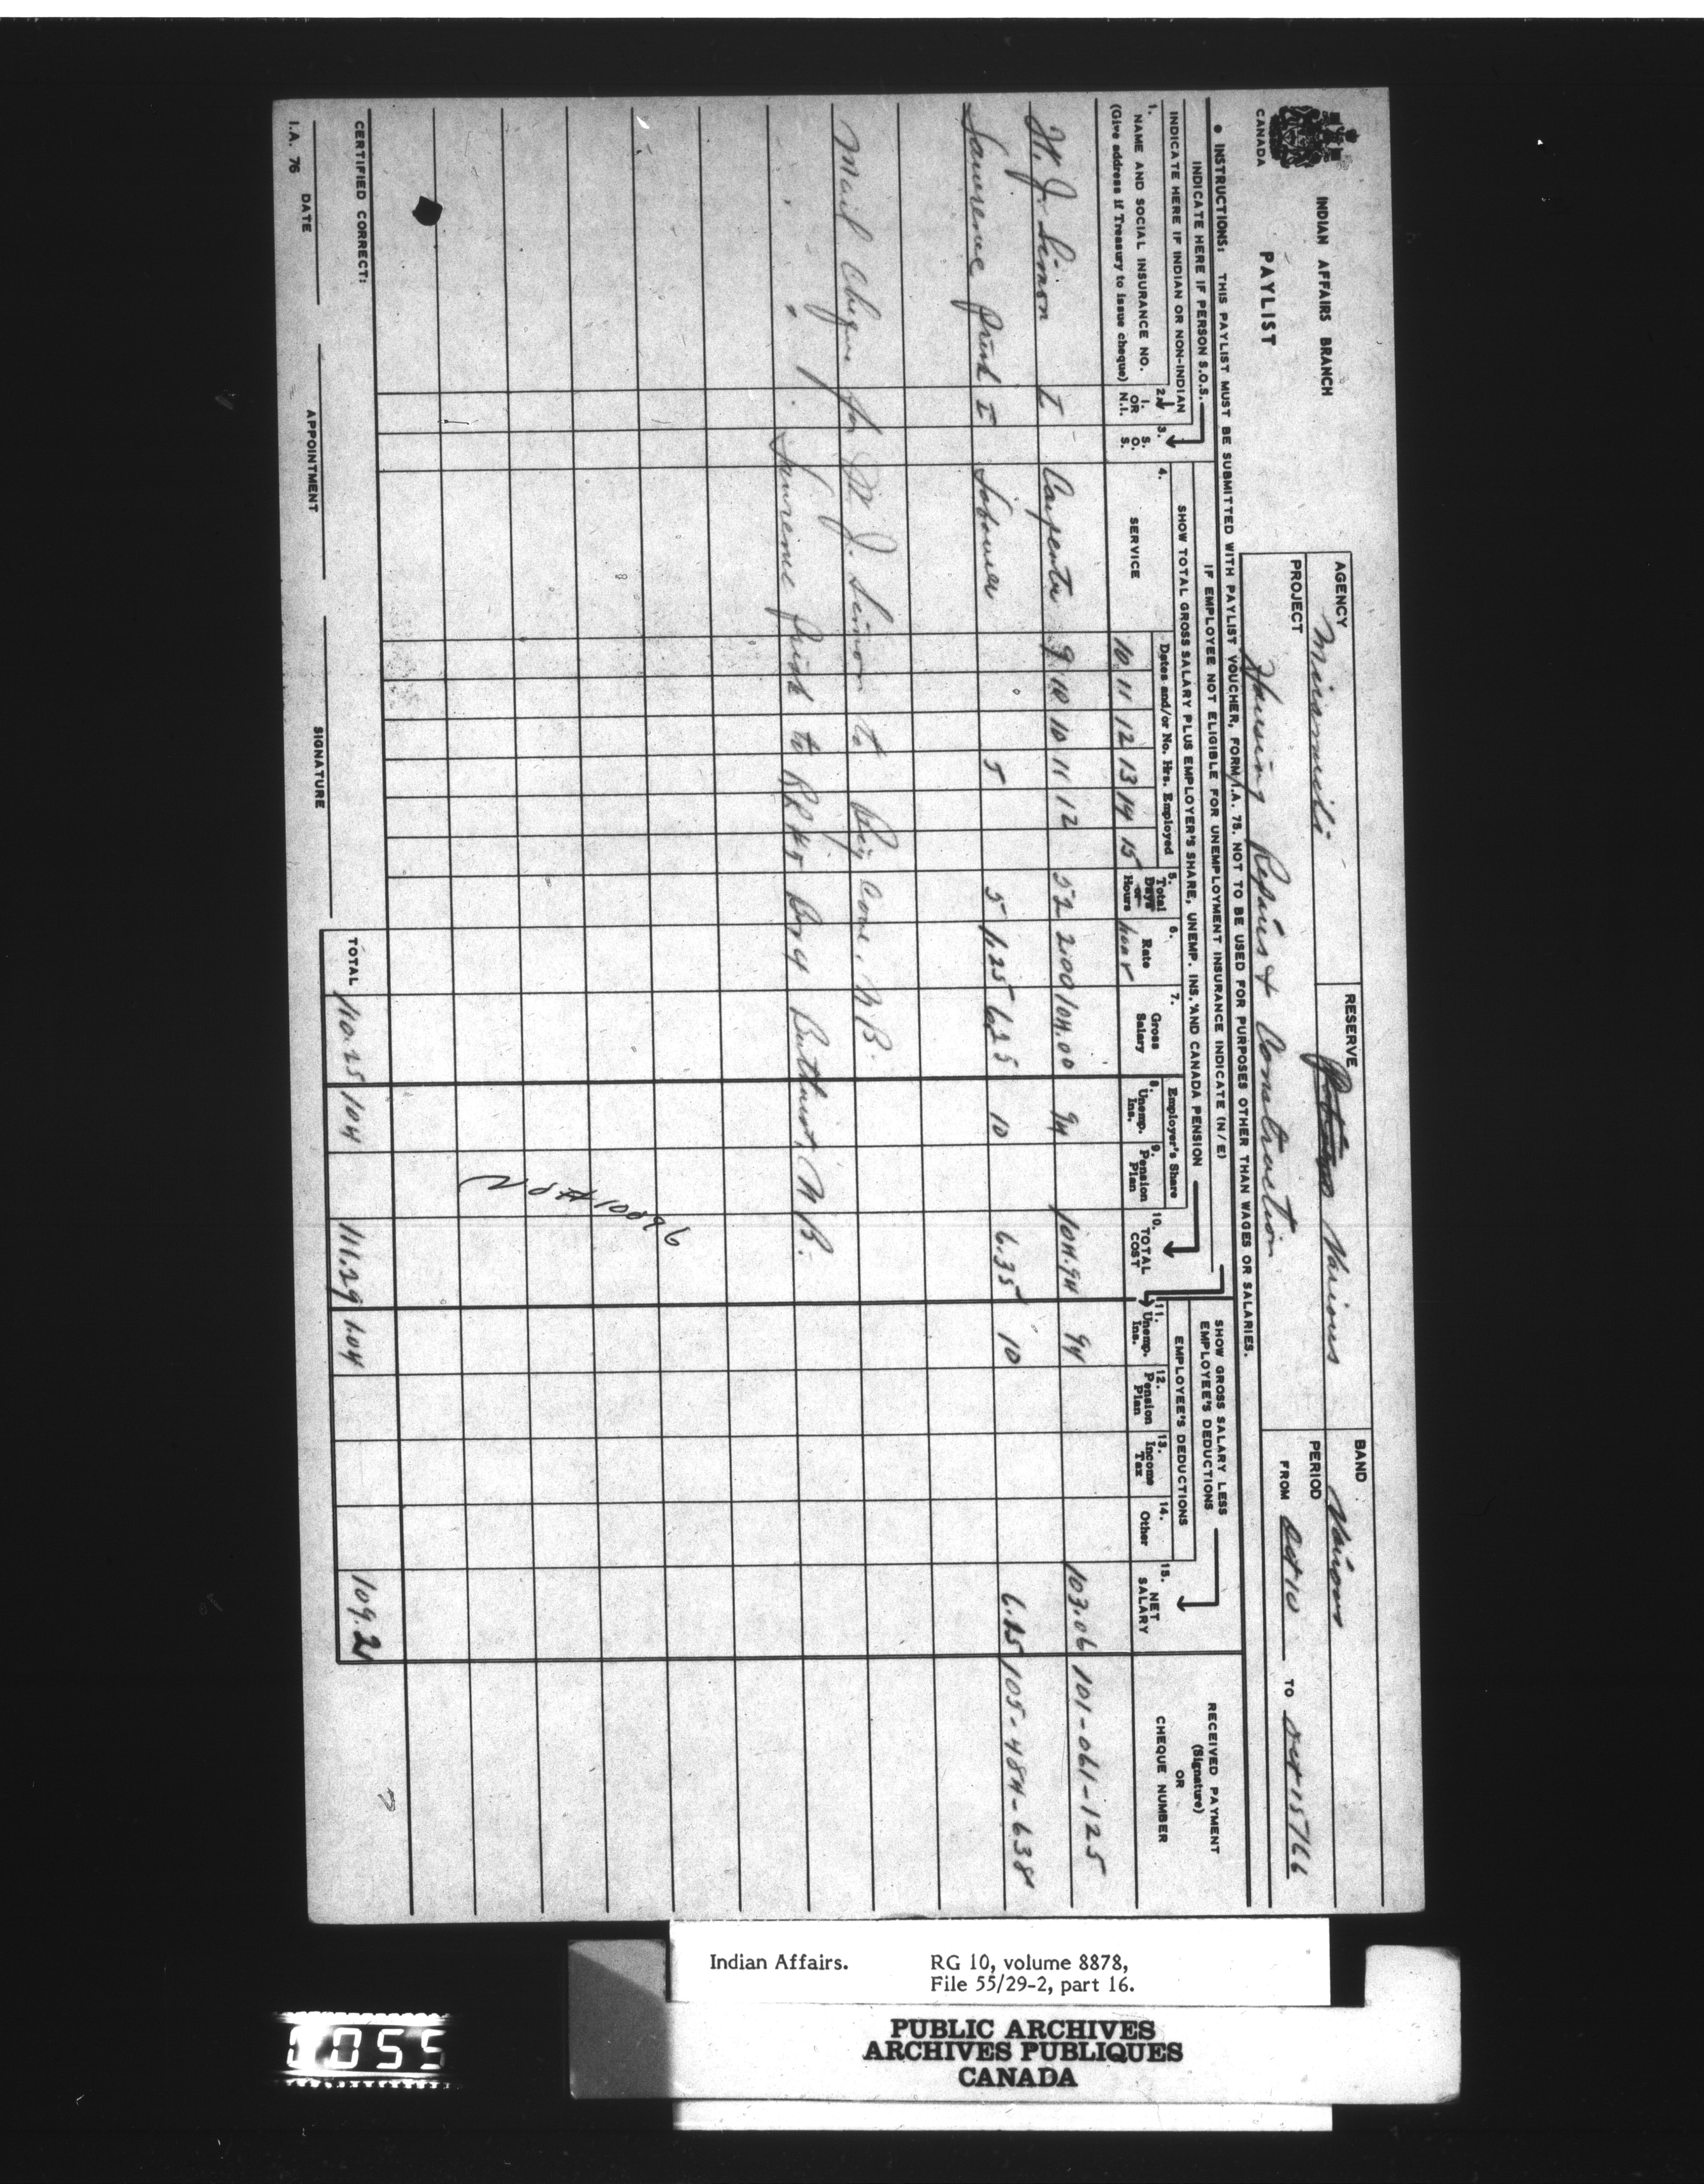 INDIAN AFFAIRS BRANCH
CANADA
PAYLIST
AGENCY Miramichi
RESERVE Various
BAND Various
PROJECT Housing Repairs & Construction
PERIOD FROM Oct 10 TO Oct 15/66
● INSTRUCTIONS: THIS PAYLIST MUST BE SUBMITTED WITH PAYLIST VOUCHER, FORM I.A. 75. NOT TO BE USED FOR PURPOSES OTHER THAN WAGES OR SALARIES.
INDICATE HERE IF PERSON S.O.S.
IF EMPLOYEE NOT ELIGIBLE FOR UNEMPLOYMENT INSURANCE INDICATE (N/E)
SHOW GROSS SALARY LESS EMPLOYEE'S DEDUCTIONS
INDICATE HERE IF INDIAN OR NON-INDIAN
SHOW TOTAL GROSS SALARY PLUS EMPLOYER'S SHARE, UNEMP. INS. AND CANADA PENSION
1. NAME AND SOCIAL INSURANCE NO. (Give address if Treasury to issue cheque)
2. I. OR N.I.
3. S. O. S.
4. SERVICE
Dates and/or No. Hrs. Employed
10 11 12 13 14 15
5. Total Days or Hours
6. Rate hour
7. Gross Salary
Employer's Share
8. Unemp. Ins.
9. Pension Plan
10. TOTAL COST
EMPLOYEE'S DEDUCTIONS
11. Unemp. Ins.
12. Pension Plan
13. Income Tax
14. Other
15. NET SALARY
RECEIVED PAYMENT (Signature) OR CHEQUE NUMBER
W. J. Simon I Carpenter 9 10 10 11 12 52 2.00 104.00 94 104.94 94 103.06 101-061-125
Lawrence I Labourer 5 5 1.25 6.25 10 6.35 10 6.15 105-484-638
Mail Cheque for W. J. Simon to Big Cove, N.B.
" " " Lawrence to RR #5 Box 4 Bathurst, N.B.
10896
TOTAL 110.25 104 111.29 1.04 109.21
CERTIFIED CORRECT:
DATE APPOINTMENT SIGNATURE
I.A. 76
Indian Affairs. RG 10, volume 8878,
File 55/29-2, part 16.
PUBLIC ARCHIVES
ARCHIVES PUBLIQUES
CANADA
055